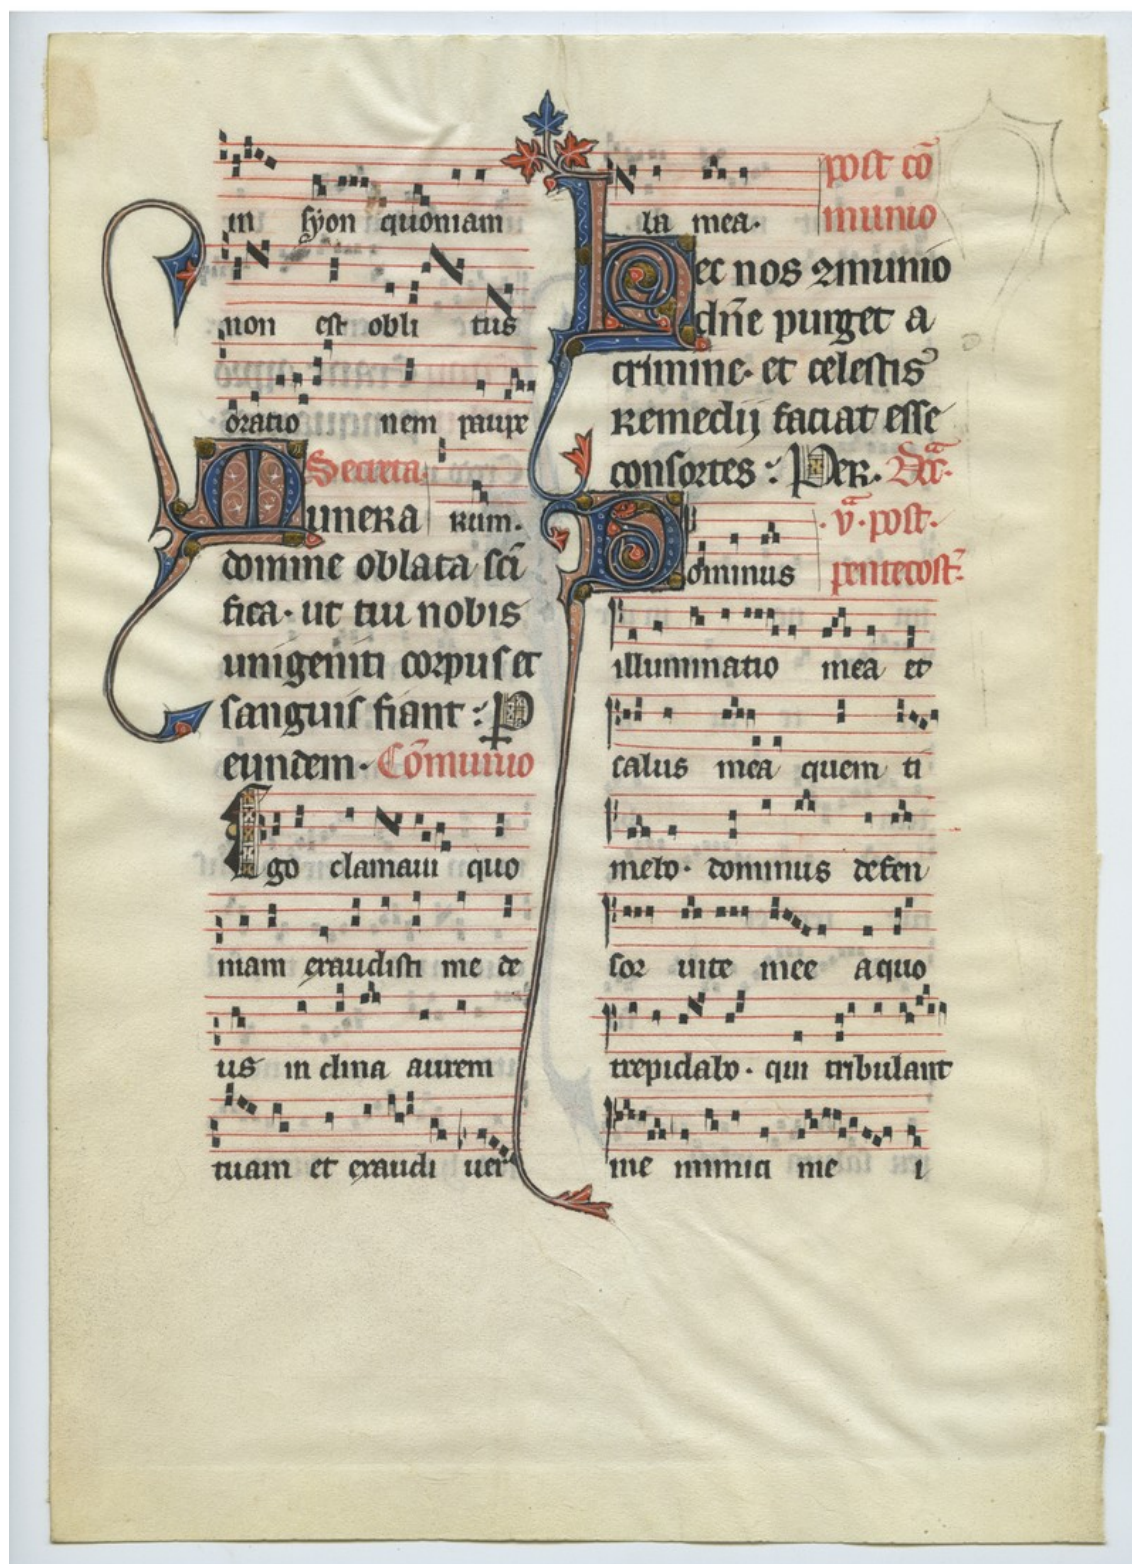 in syon quoniam
non est obli tus
oratio nem paupe
Secreta.
Munera rum.
domine oblata scī
fica· ut tui nobis
unigeniti corpus et
sanguis fiant : P
eundem· Cōmunio
Ego clamaui quo
niam exaudisti me de
us in clina aurem
tuam et exaudi uer
la mea· post cō
munio
Hec nos 2munio
dn̄e purget a
crimine· et celestis
remedij faciat esse
consortes : Per.
v̄· post·
Dominus pentecost
illuminatio mea et
salus mea quem ti
mebo· dominus defen
sor uite mee a quo
trepidabo· qui tribulant
me inimici me i